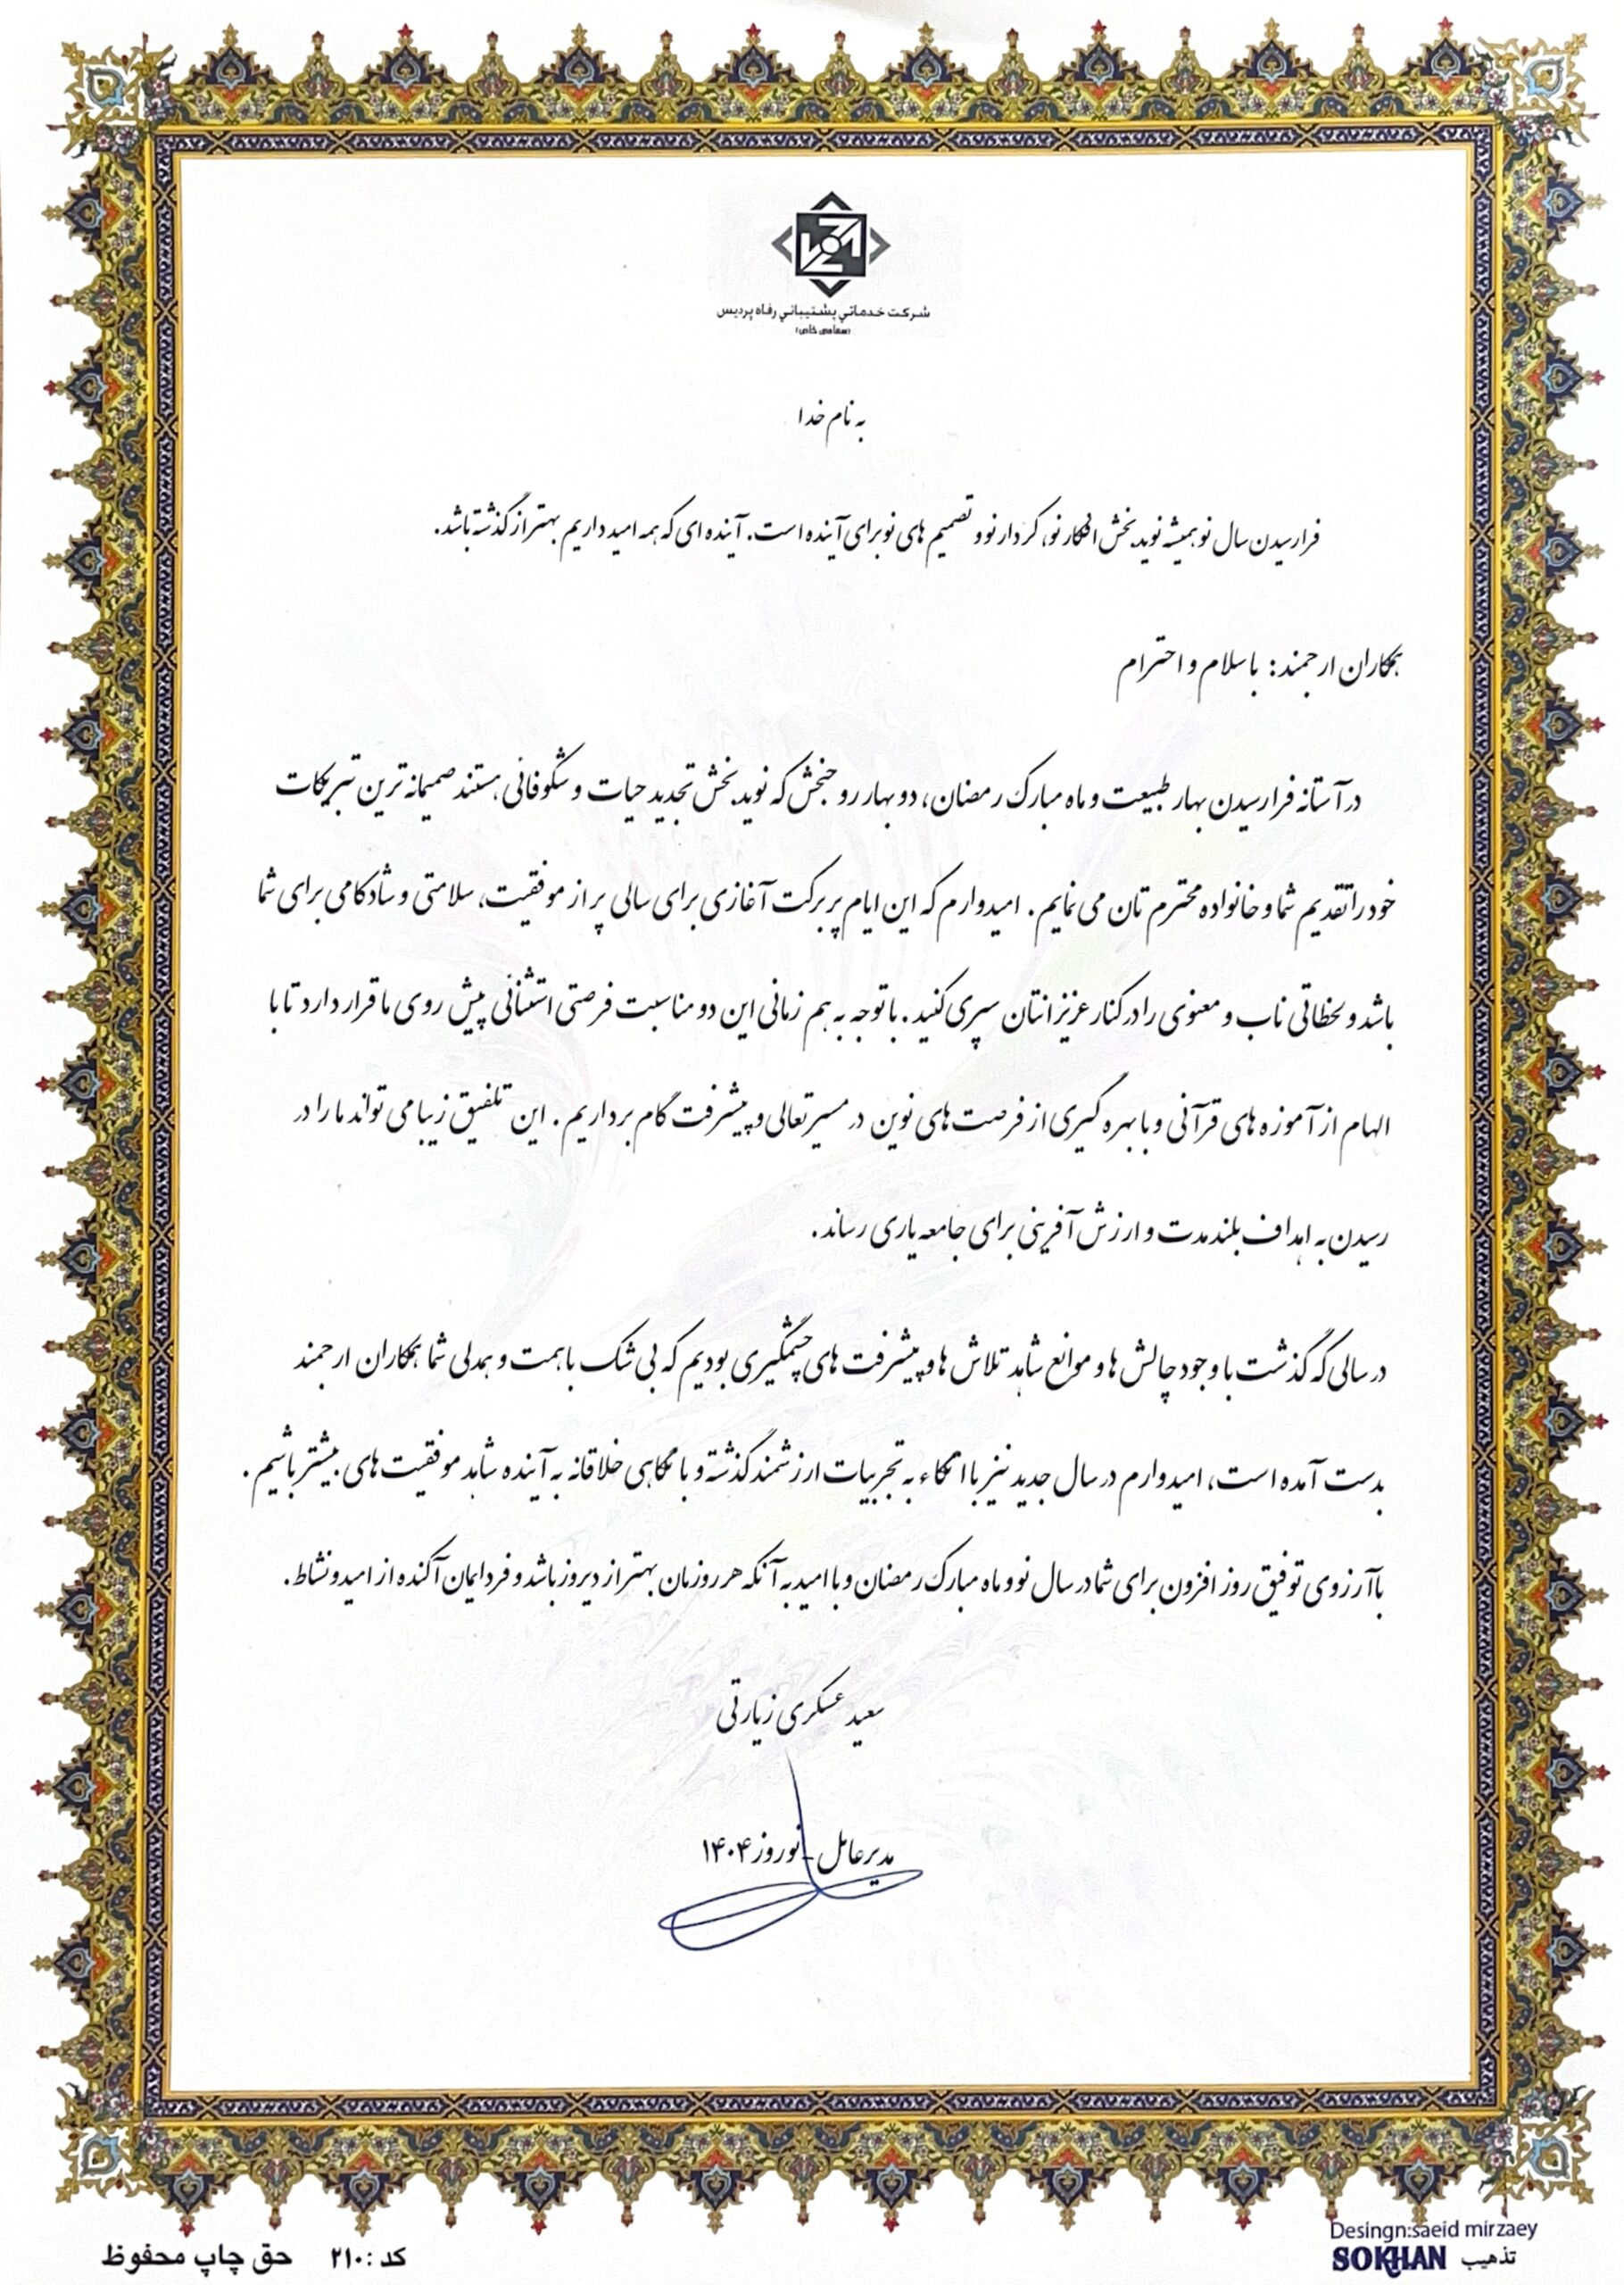 شرکت خدماتي پشتيباني رفاه پرديس
(سهامی خاص)
به نام خدا
فرارسیدن سال نو همیشه نوید بخش افکار نو، کردار نو و تصمیم های نو برای آینده است. آینده ای که همه امید داریم بهتر از گذشته باشد.
همکاران ارجمند: با سلام و احترام
در آستانه فرارسیدن بهار طبیعت و ماه مبارک رمضان، دو بهار روحبخش که نوید بخش تجدید حیات و شکوفائی هستند صمیمانه ترین تبریکات
خود را تقدیم شما و خانواده محترم تان می نمایم. امیدوارم که این ایام پر برکت آغازی برای سالی پر از موفقیت، سلامتی و شادکامی برای شما
باشد و لحظاتی ناب و معنوی را در کنار عزیزانتان سپری کنید. با توجه به هم زمانی این دو مناسبت فرصتی استثنائی پیش روی ما قرار دارد تا با
الهام از آموزه های قرآنی و با بهره گیری از فرصت های نوین در مسیر تعالی و پیشرفت گام برداریم. این تلفیق زیبا می تواند ما را در
رسیدن به اهداف بلند مدت و ارزش آفرینی برای جامعه یاری رساند.
در سالی که گذشت با وجود چالش ها و موانع شاهد تلاش ها و پیشرفت های چشمگیری بودیم که بی شک با همت و همدلی شما همکاران ارجمند
بدست آمده است، امیدوارم در سال جدید نیز با اتکاء به تجربیات ارزشمند گذشته و با نگاهی خلاقانه به آینده شاهد موفقیت های بیشتر باشیم.
با آرزوی توفیق روز افزون برای شما در سال نو و ماه مبارک رمضان و با امید به آنکه هر روزمان بهتر از دیروز باشد و فردایمان آکنده از امید و نشاط.
سعید عسکری زیارتی
مدیرعامل - نوروز ۱۴۰۴
Desingn:saeid mirzaey
تذهیب SOKHAN
کد :۲۱۰ حق چاپ محفوظ